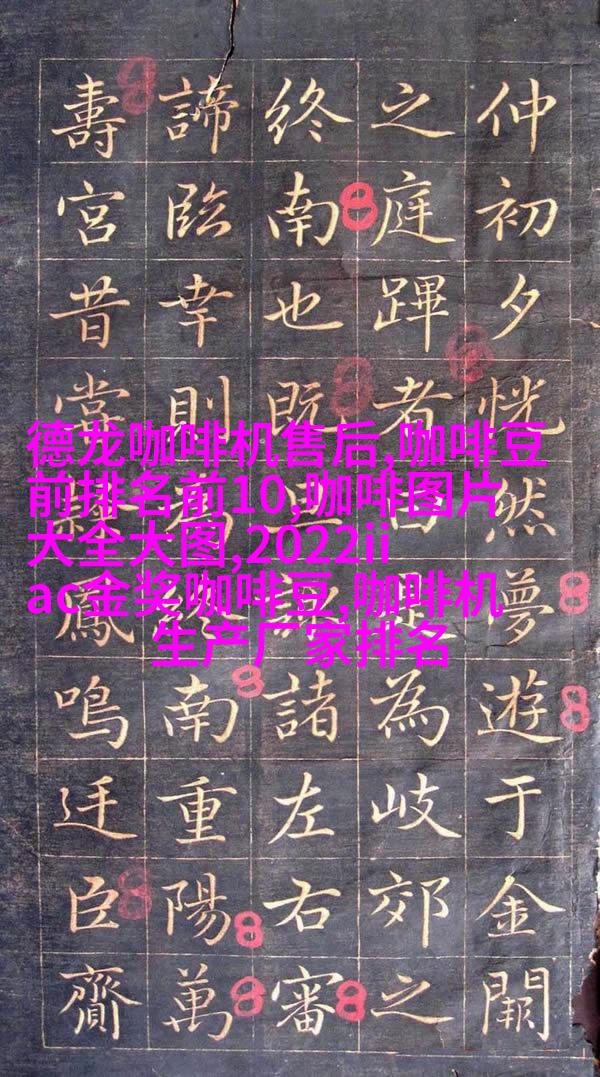 德龙咖啡机售后,咖啡豆
前排名前10,咖啡图片
大全大图,2022ii
ac金奖咖啡豆,咖啡机
生产厂家排名
仲初夕恍然夢遊于金闕
之庭蹕者為岐郊之
終南也既諸左右審
諦臨幸則南重陽萬
壽宮昔嘗鳳鳴迋臣齎